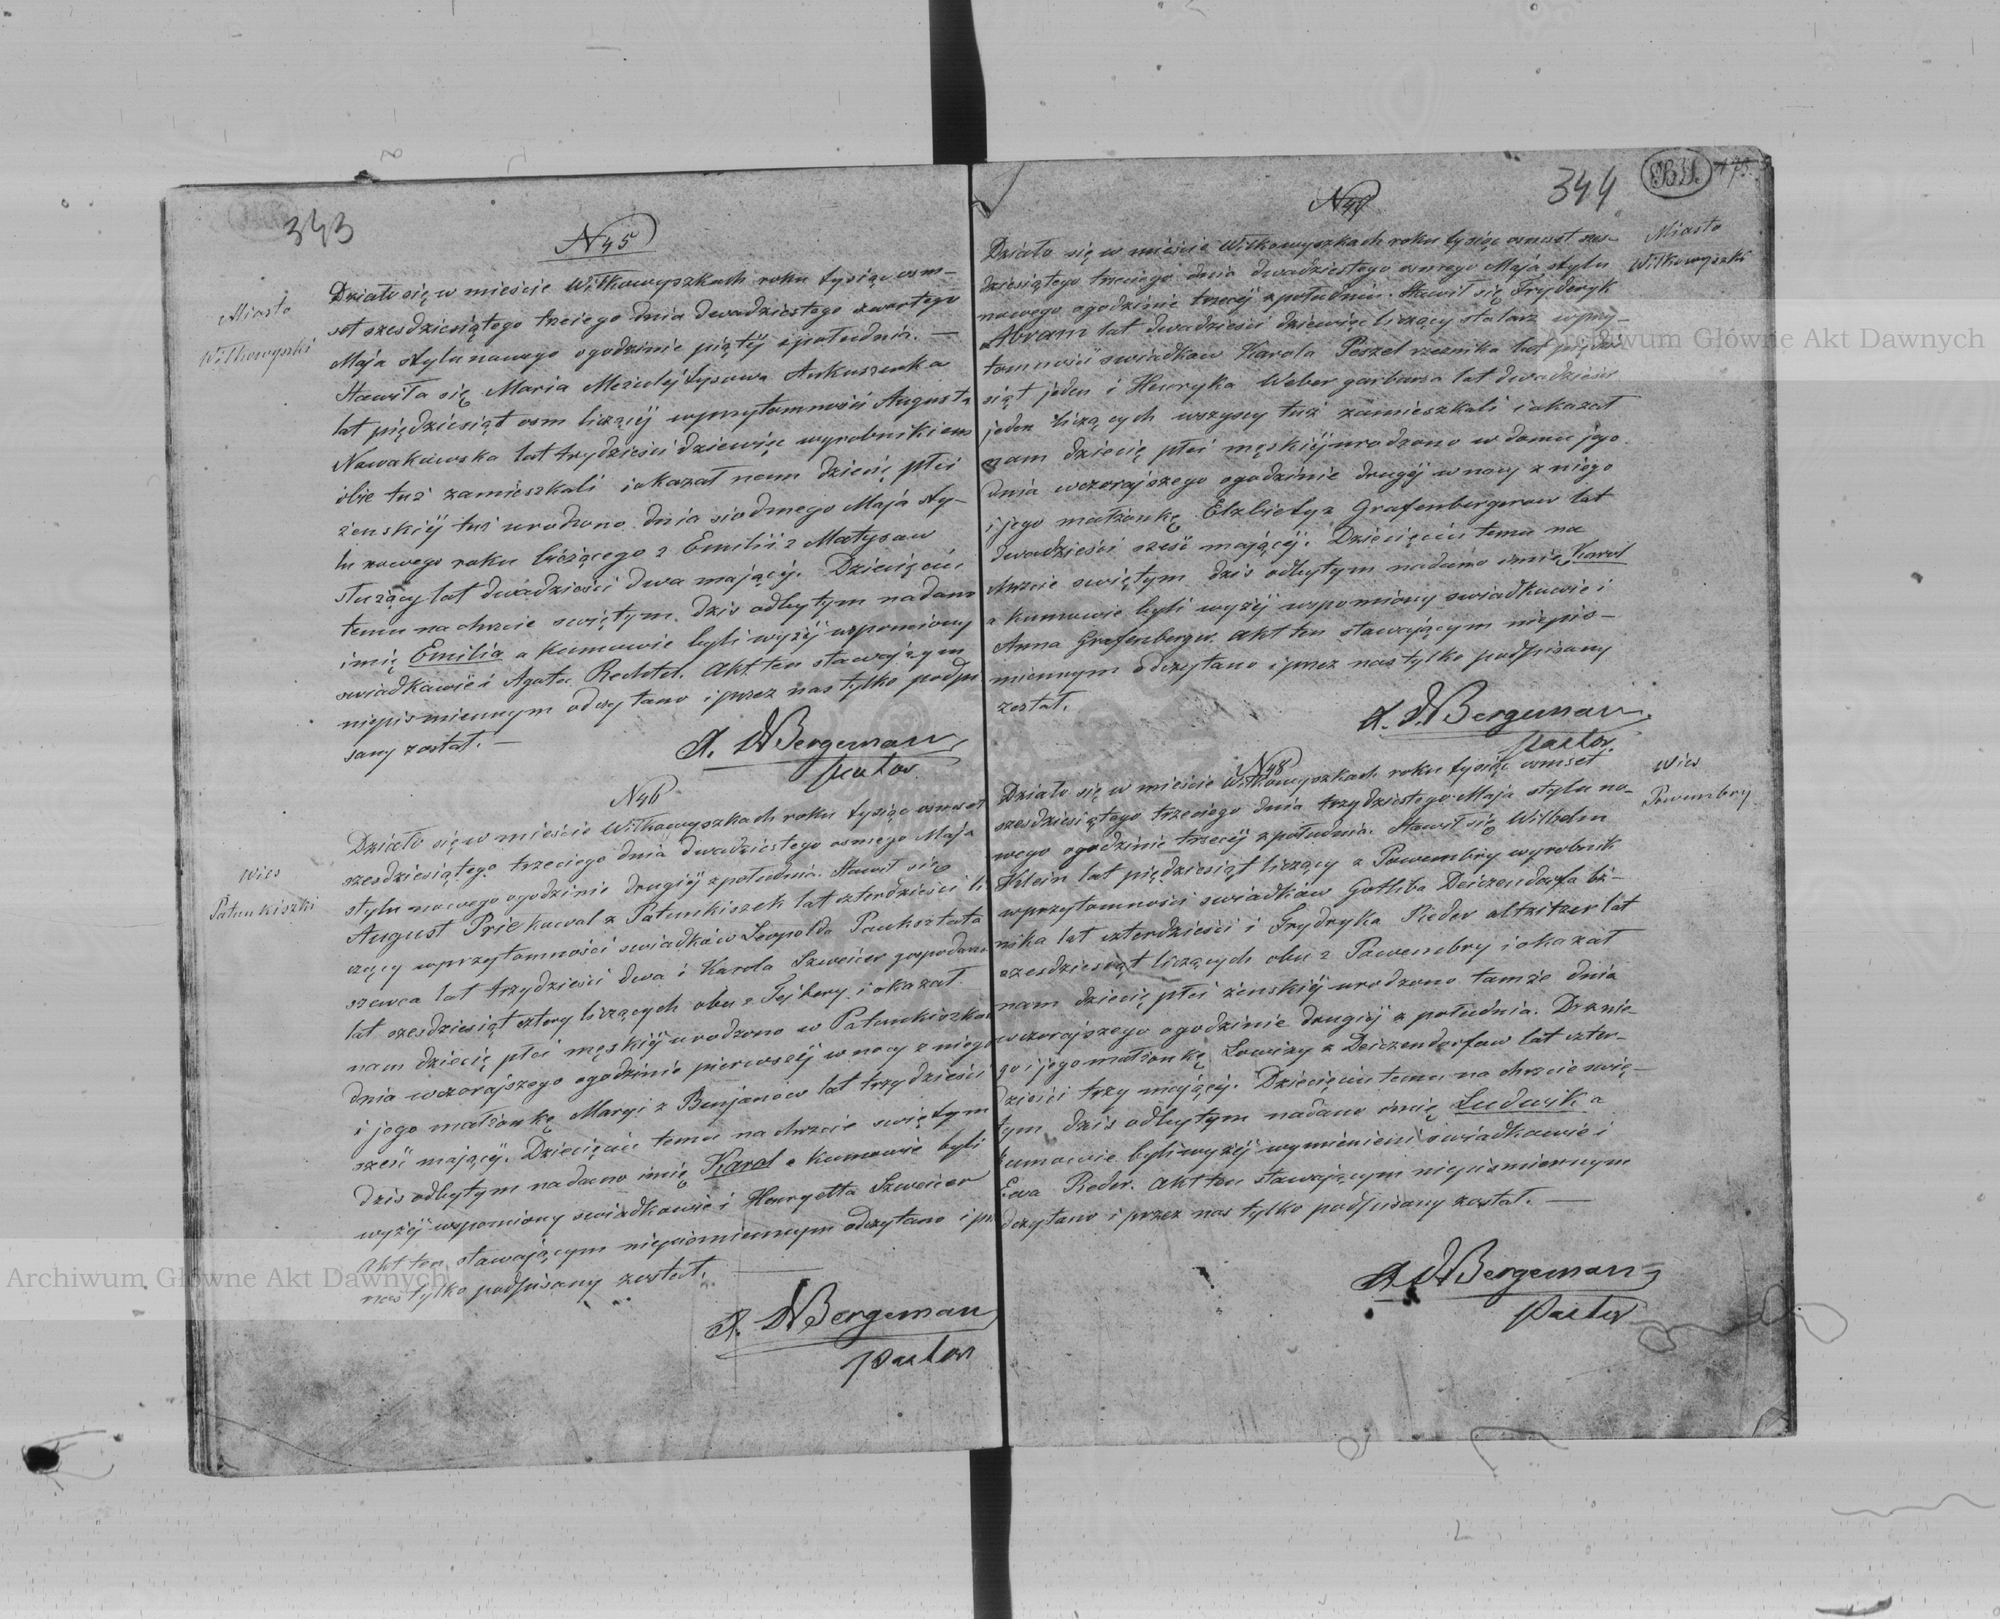 343
N 45
Miasto
Wiłkowyszki
Działo się w mieście Wiłkowyszkach roku tysiąc osm-
set szesdziesiątego trzeciego dnia dwadziestego czwartego
Maja stylu nowego ogodzinie piątéj zpołudnia. —
Stawiła się Maria
lat pięśdziesiąt osm licząćy wprzytomności Augusta
Nowakowska lat trzydzieści dziewięc wyrobnikiem
obie tuż zamieszkali iokazał nam dziecię płci
żenskiéj tuż urodzono dnia siodmego Maja sty-
lu nowego roku bieżącego z Emilii z Matysow
służący lat dwadzieści dwa mającéj. Dziecięciu
temu na chrzcie swiętym dzis odbytym nadano
imię Emilia a kumowie byli wyżéj wspomiony
swiadkowie i Agata Rechter. Akt ten stawającym
niepismiennym odczytano i przez nas tylko podpi
sany został. —
A. W Bergeman
pastor
N 46
Wies
Patunkiszki
Działo się w mieście Wiłkowyszkach roku tysiąc osmset
szesdziesiątego trzeciego dnia dwadziestego osmego Maja
stylu nowego ogodzinie drugiéj zpołudnia. Stawił się
August Priekowal z Patunkiszek lat czterdzieści li
czący wprzytomności swiadków Leopolda Pauksztata
szewca lat trzydzieści dwa i Karola Szweicer gospodarza
lat szesdziesiąt cztery liczących obu z Fejbery i okazał
nam dziecię płci męskiéj urodzono w Patunkiszkach
dnia wczorajszego ogodzinie pierwszéj w nocy z niego
i jego małżonkę Maryi z Benjanow lat trzydzieści
sześć mającéj. Dziecięciu temu na chrzcie swiętym
dzis odbytym nadano imię Karol a kumowie byli
wyżéj wspomiony swiadkowie i Henryetta Szweicer
Akt ten stawającym niepismiennym odczytano i pr
nas tylko podpisany został.
A. W Bergeman
pastor
344
175
N 47
Miasto
Wiłkowyszki
Działo się w mieście Wiłkowyszkach roku tysiąc osmset szes-
dziesiątego trzeciego dnia dwadziestego osmego Maja stylu
nowego ogodzinie trzeciéj zpołudnia. Stawił się Fryderyk
Abram lat dwadzieści dziewięc liczący stolarz wprzy-
tomności swiadkow Karola Peszel rzeznika lat pięśdzie
siąt jeden i Henryka Weber garbarza lat dwadzieści
jeden liczących wszyscy tuż zamieszkali i okazał
nam dziecię płci męskiéj urodzono w domu jego
dnia wczorajszego ogodzinie drugéj w nocy z niego
i jego małżonkę Elzbiety z Grafenbergerow lat
dwadzieści sześć mającéj. Dziecięciu temu na
chrzcie swiętym dzis odbytym nadano imię Karol
a kumowie byli wyżéj wspomiony swiadkowie i
Anna Grafenberger. Akt ten stawającym niepis-
miennym odczytano i przez nas tylko podpisany
został.
A. W Bergeman
pastor.
N 48
Wies
Powembry
Działo się w mieście Wiłkowyszkach roku tysiąc osmset
szesdziesiątego trzeciego dnia trzydziestego Maja stylu no-
wego ogodzinie trzeciéj zpołudnia. Stawił się Wilhelm
Klein lat pięśdziesiąt liczący z Powembry wyrobnik
wprzytomności swiadków Gotliba Deiczendorfa
lat czterdzieści i Frydryka Rieder altzitzer lat
szesdziesiąt liczących obu z Powembry i okazał
nam dziecię płci żenskiéj urodzono tamże dnia
wczorajszego ogodzinie drugiéj z południa. z nie-
go i jego małżonkę Lowizy z Deiczendorfow lat czter-
dzieści trzy mającéj. Dziecięciu temu na chrzcie swię-
tym dzis odbytym nadano imię Ludwik a
kumowie byli wyżéj wymienieni swiadkowie i
Ewa Reder. Akt ten stawającym niepismiennym
odczytano i przez nas tylko podpisany został. —
A. W Bergeman
Pastor
Archiwum Główne Akt Dawnych
Archiwum Główne Akt Dawnych